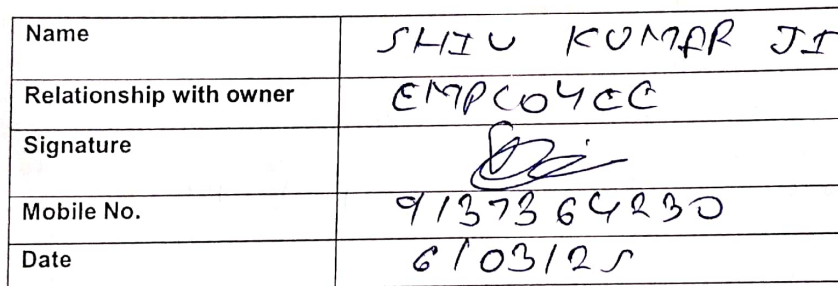 Name SHIV KUMAR JI
Relationship with owner EMPLOYEE
Signature
Mobile No. 9137364230
Date 6/03/25